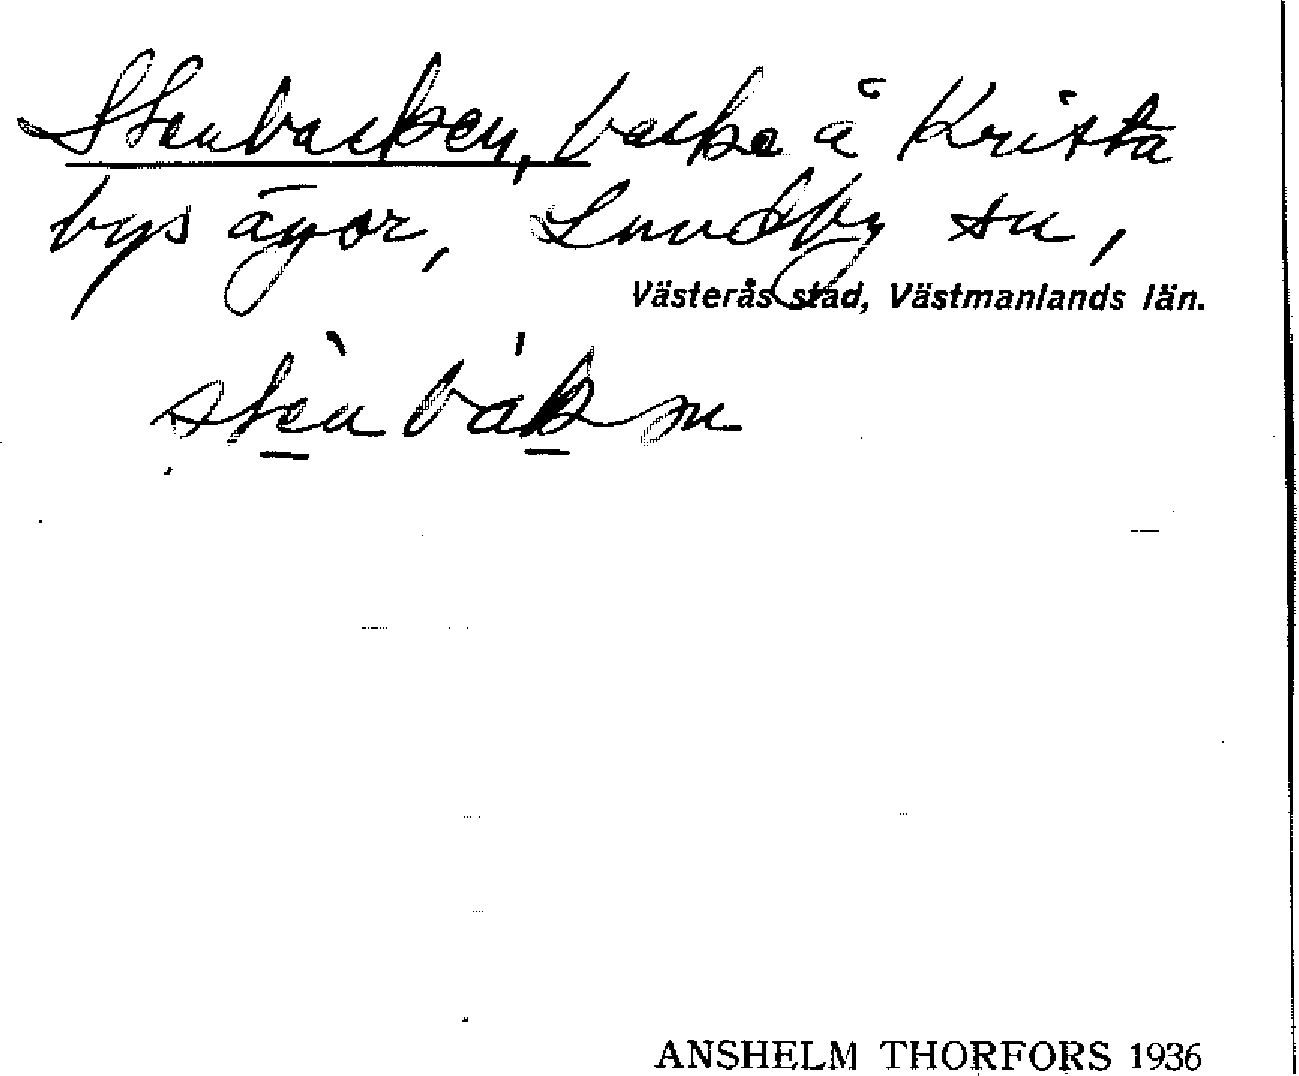 Stenbacken, backe å Krista
bys ägor, Lundby sn,
Västerås stad, Västmanlands län.
stè̱nbáḵɴ
ANSHELM THORFORS 1936